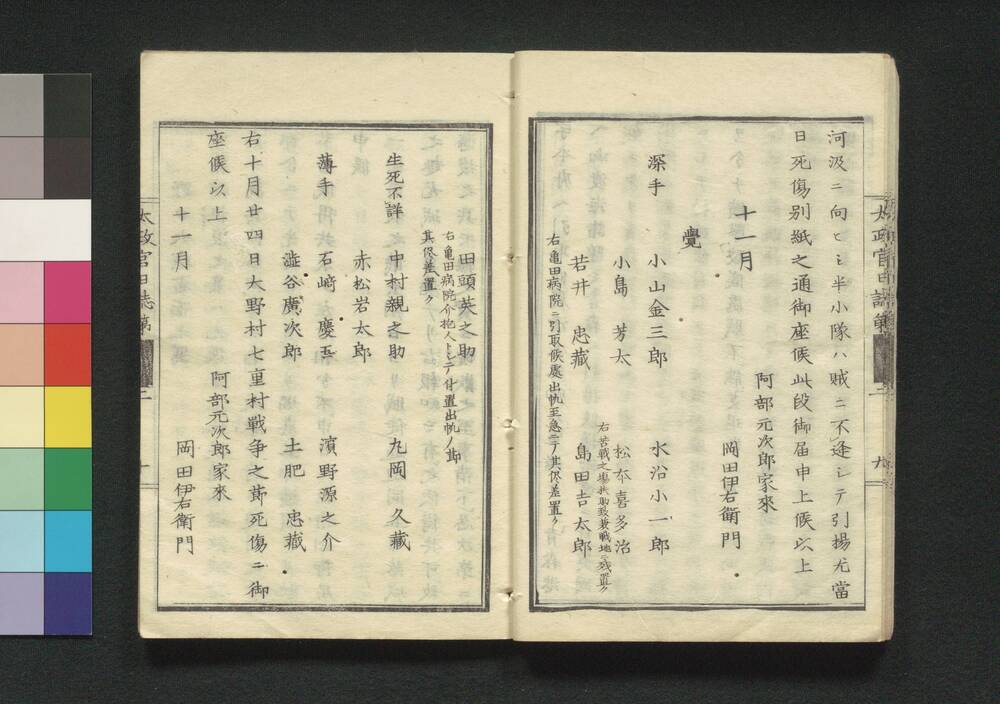 河汲ニ向ヒシ半小隊ハ賊ニ不逢シテ引揚尤當
日死傷別紙之通御座候此段御届申上候以上
十一月
阿部元次郎家來
岡田伊右衛門
覺
深手
小山金三郎
水沿小一郎
小島 芳太
松本喜多治
右苦戰之場
若井 忠藏
島田吉太郎
右亀田病院ニ引取候處出帆至急ニテ其侭差置ク
田頭英之助
右亀田病院介抱人トシテ付置出帆ノ節
其侭差置ク
生死不詳
中村親之助
九岡 久藏
赤松岩太郎
薄手
石﨑 慶吾
濱野源之介
澁谷廣次郎
土肥 忠藏
右十月廿四日大野村七重村戰争之節死傷ニ御
座候以上
十一月
阿部元次郎家來
岡田伊右衛門
太政官日誌第
太政官日誌第
九